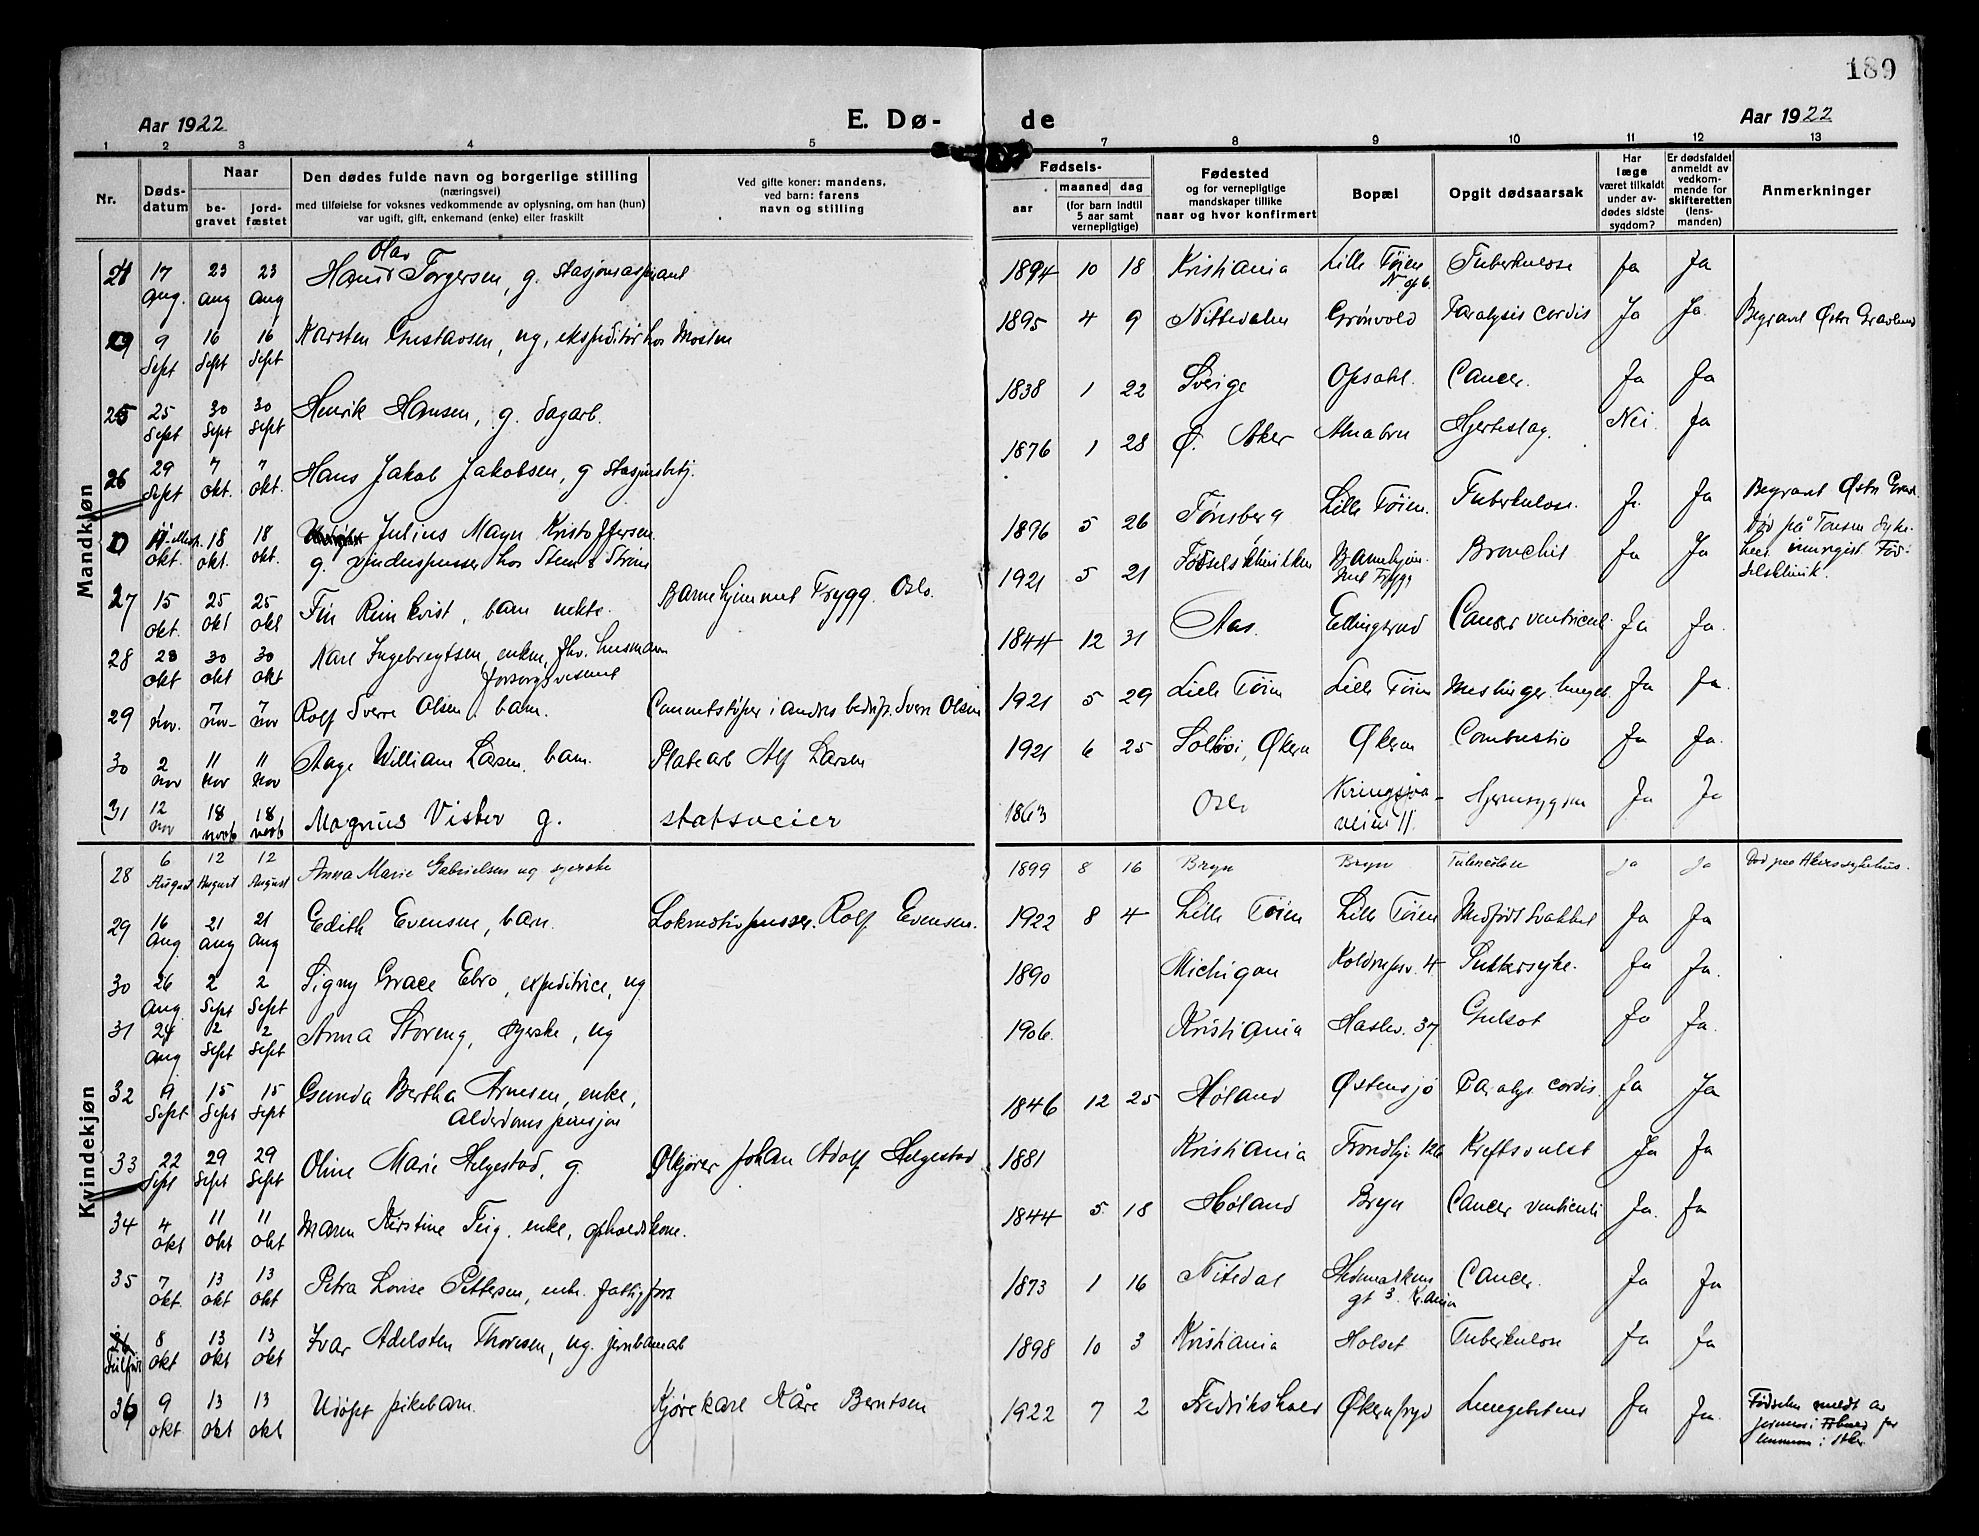 189
Aar 1922 E. Dø- de Aar 1922
1 2 3 4 5 7 8 9 10 11 12 13
Nr.
Døds-
datum
Naar
be-
gravet
jord-
fæstet
Den dødes fulde navn og borgerlige stilling
(næringsvei)
med tilføielse for voksnes vedkommende av oplysning, om han (hun)
var ugift, gift, enkemand (enke) eller fraskilt
Ved gifte koner: mandens,
ved barn: farens
navn og stilling
Fødsels-
aar
maaned dag
(for barn indtil
5 aar samt
vernepligtige)
Fødested
og for vernepligtige
mandskaper tillike
naar og hvor konfirmert
Bopæl
Opgit dødsaarsak
Har
læge
været tilkaldt
under av-
dødes sidste
sygdom?
Er dødsfaldet
anmeldt av
vedkom-
mende for
skifteretten
(lens-
manden)
Anmerkninger
Mandkjøn
24 17 Aug. 23 aug 23 aug Hans Olav Torgersen, g. stasjonsaspirant 1894 10 18 Kristiania Lille Tøien Tuberkulose Ja Ja
9 Sept 16 Sept 16 Sept Karsten Gustavsen, ug, ekspeditør hos Mosten 1895 4 9 Nittedalen Grønvold Paralysis cordis Ja Ja Begravet Østre Gravlund
25 25 Sept 30 Sept 30 Sept Henrik Hansen, g. dagarb. 1838 1 22 Sverige Opsahl. Cancer. Ja Ja
26 29 Sept 7 okt. 7 okt. Hans Jakob Jakobsen, g stasjonsbetj. 1876 1 28 Ø. Aker Alnabru Hjerteslag. Nei. Ja
11 okt. 18 okt. 18 okt. Julius Magn Kristoffersen g. vinduspusser hos Steen & Strøm 1896 5 26 Tønsberg Lille Tøien. Tuberkulose. Ja Ja Begravet Østre Grav.
27 15 okt. 25 okt 25 okt Fin Reinkvist, barn uekte. Barnehjemmet Trygg. Oslo. 1921 5 21 Fødselsklinikken Barnehjem. Bronchit Ja Ja Død på Tonsen Syke-
28 28 okt 30 okt 30 okt Karl Ingebregtsen, enkem, fhv. husmann forsorgsvesenet 1844 12 31 Aas. Ellingsrud Cancer ventriculi Ja Ja.
29 1 nov. 7 nov- 7 nov Rolf Sverre Olsen. barn. Cementstøper i andres bedrift. Sverre Olsen 1921 5 29 Lille Tøien Lille Tøien Meslinger. lunget. Ja Ja.
30 2 nov 11 nov 11 nov Aage William Larsen, barn. Platearb Alf Larsen 1921 6 25 Solbøi, Økern Økern Combustio Ja Ja.
31 12 nov 18 novb 18 novb Magnus Vister g. statsveier 1863 Oslo Kringsjaa- veien 11. Hjernesygdom Ja Ja
Kvindekjøn
28 6 August 12 August 12 August Anna Marie Gabrielsen ug syerske 1899 8 16 Bryn Bryn Tuberculose ja ja Død paa Akers sykehus.
29 16 Aug. 21 aug 21 aug Edith Evensen, barn. Lokomotivpusser. Rolf Evensen. 1922 8 4 Lille Tøien Lille Tøien Medfødt svakhet Ja Ja
30 26 aug. 2 Sept 2 Sept Signy Grace Ebro, expeditrice, ug 1890 Michigan Sukkersyke. Ja Ja.
31 24 aug 2 Sept 2 Sept Anna Storeng, syerske, ug 1906. Kristiania Haslev. 37 Gulsot Ja Ja.
32 9 Sept. 15 Sept 15 Sept Gunda Bertha Arnesen, enke, Alderdomspensjon 1846 12 25 Høland Østensjø Paralys cordis. Ja Ja
33 22 Sept 29 Sept 29 Sept Oline Marie Helgestad, g. Ølkjører Johan Adolf Helgestad 1881 Kristiania Trondhj. 126 Kreftsvulst Ja Ja
34 4 okt 11 okt 11 okt Maren Kirstine Teig. enke, opholdskone. 1844 5 18 Høland Bryn Cancer ventriculi Ja. Ja
35 7 okt. 13 okt 13 okt Petra Lovise Pettersen, enke. fattigfors 1873 1 16 Nitedal Hedemarkens gt 3. Kr.ania Cancer. Ja Ja
8 okt 13 okt 13 okt Ivar Adelsten Thoresen, ug. jernbanearb 1898 10 3 Kristiania Holset Tuberkulose Ja Ja
36 9 okt. 13 okt 13 okt Udøpt pikebarn. Kjørekarl Kåre Berntsen 1922 7 2 Fredrikshald Økernbryd Lungebetend Ja Ja. Fødselen meldt av